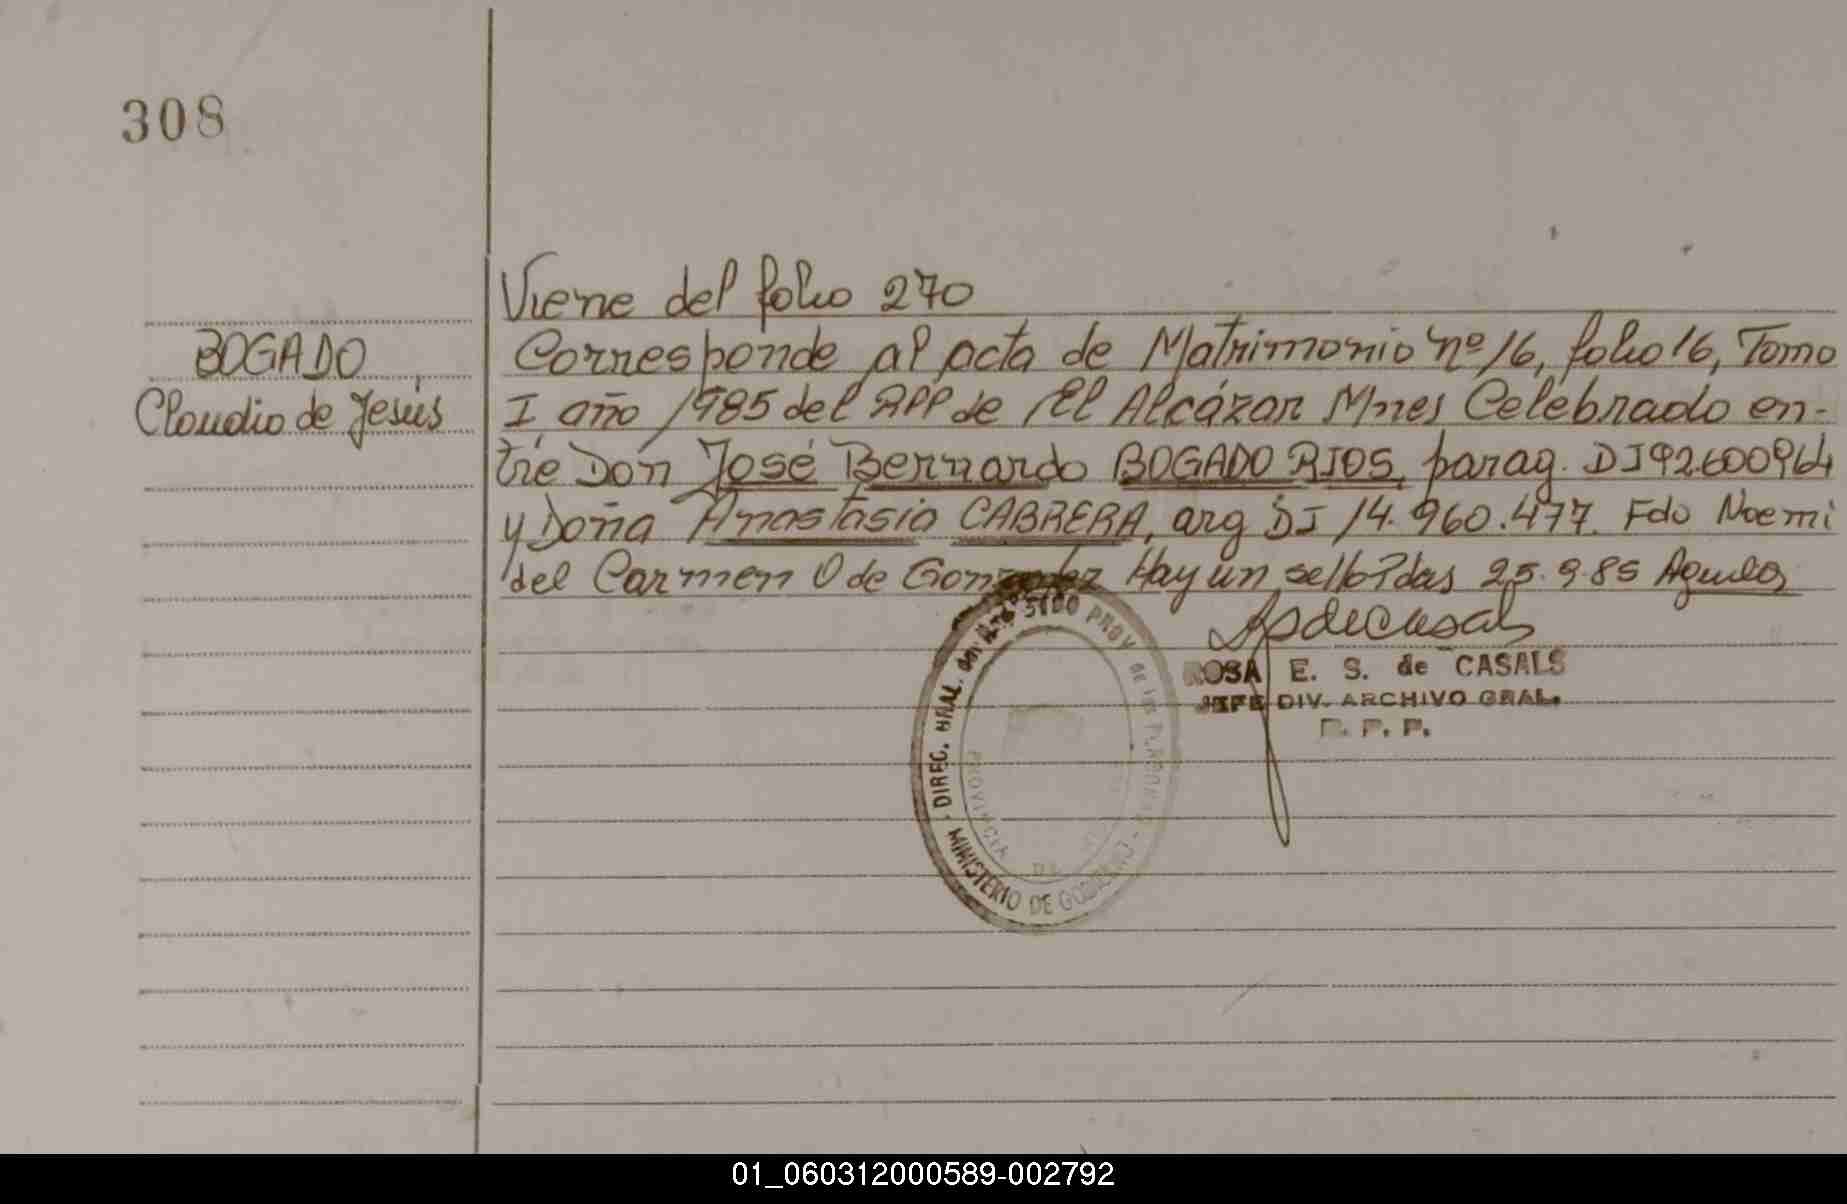 308
Viene del folio 270
BOGADO
Claudio de Jesús
Corresponde al acta de Matrimonio nº 16, folio 16, Tomo
I año 1985 del RPP de El Alcázar Mnes Celebrado en-
tre Don José Bernardo BOGADO RIOS, parag. DI 92.600964
y Doña Anastasia CABRERA, arg DI 14.960.477. Fdo Noemi
del Carmen O de Gonzalez Hay un sello Pdas 25.9.85
ROSA E. S. de CASALS
JEFE DIV. ARCHIVO GRAL.
R. P. P.
DIREC. GRAL. PROV de las PERSONAS
MINISTERIO DE GOBIERNO
PROVINCIA DE
01_060312000589-002792